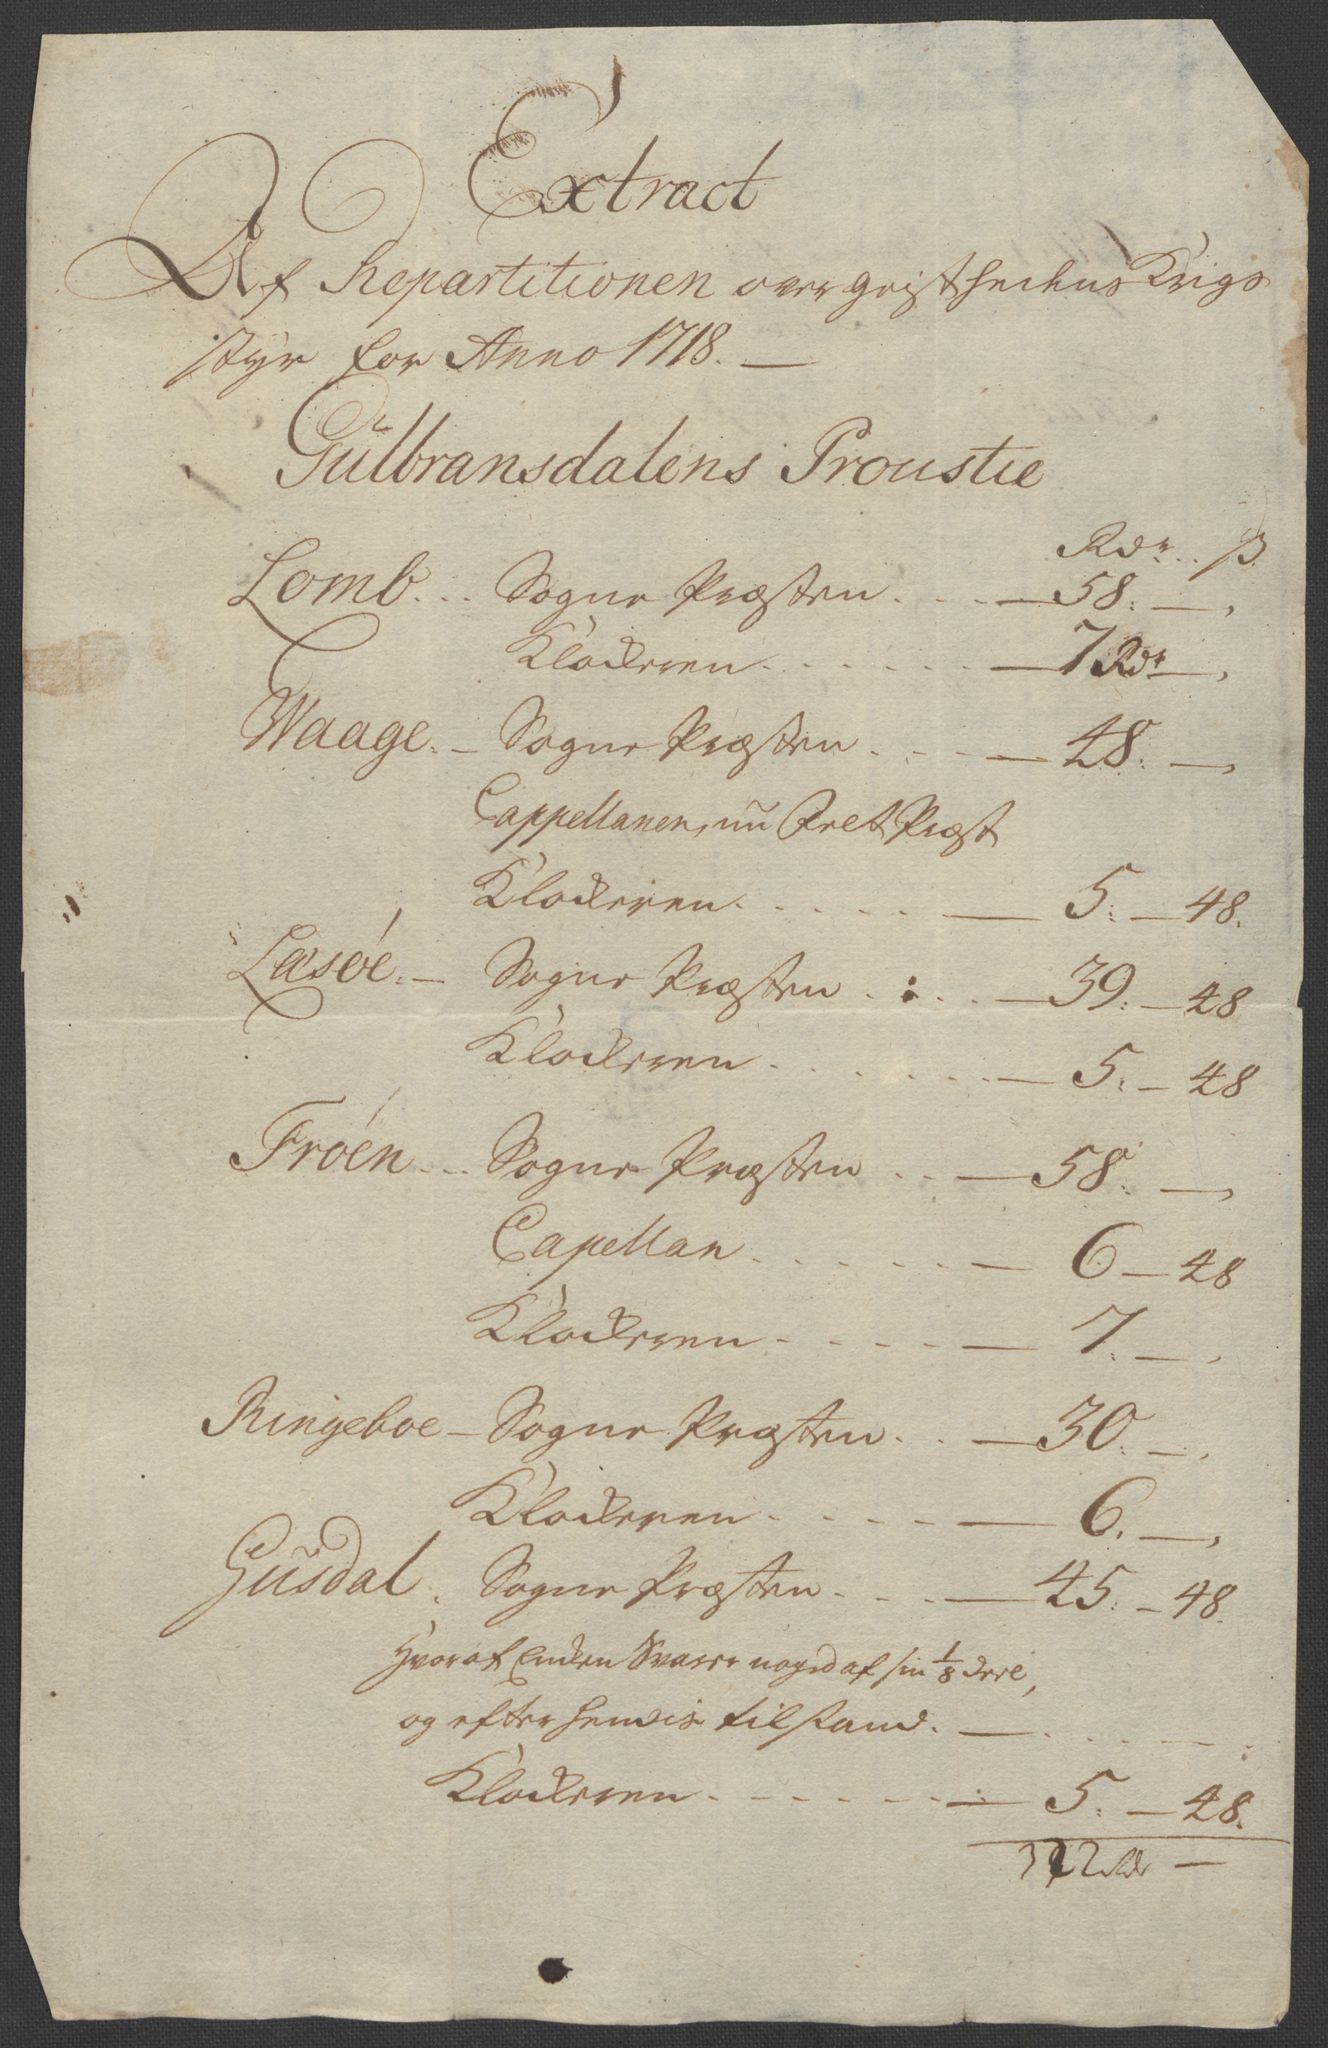 Extract
Af Repartitionen over geisthedens Krigs
styr for Anno 1718. —
Gulbransdalens Proustie
Rdr. ß.
Lomb... Sogne Præsten .... — 58: —,
Klockeren ....... — 7 Rdr —,
Waage. — Sogne Præsten .... — 48: —,
Cappellanen, nu Præst
Klockeren ...... — 5: — 48.
Læsøe. — Sogne Præsten .... — 39: — 48
Klockeren ....... — 5: — 48
Frøen... Sogne Præsten ... — 58: —,
Capellan ...... — 6 — 48
Klockeren ..... — 7. —,
Ringeboe — Sogne Præsten ... — 30: —,
Klockeren ..... — 6. —,
Gusdal. Sogne Præsten .... — 45: — 48.
Hvoraf Enken Svarer noged af sin 1/8 deel,
og efter hendis tilstand. —
Klockeren ...... — 5: — 48.
322 Rdr —